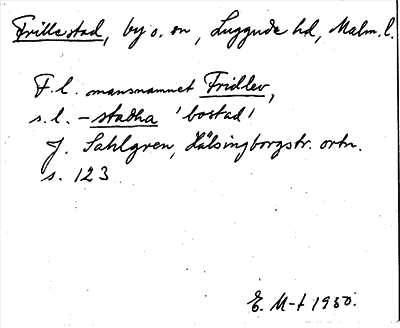 Frillestad, by o. sn, Luggude hd, Malm. l.
F. l. mansnamnet Fridlev,
s. l. -stadha 'bostad'
J. Sahlgren, Hälsingborgstr. ortn.
s. 123
E. M-t 1950.